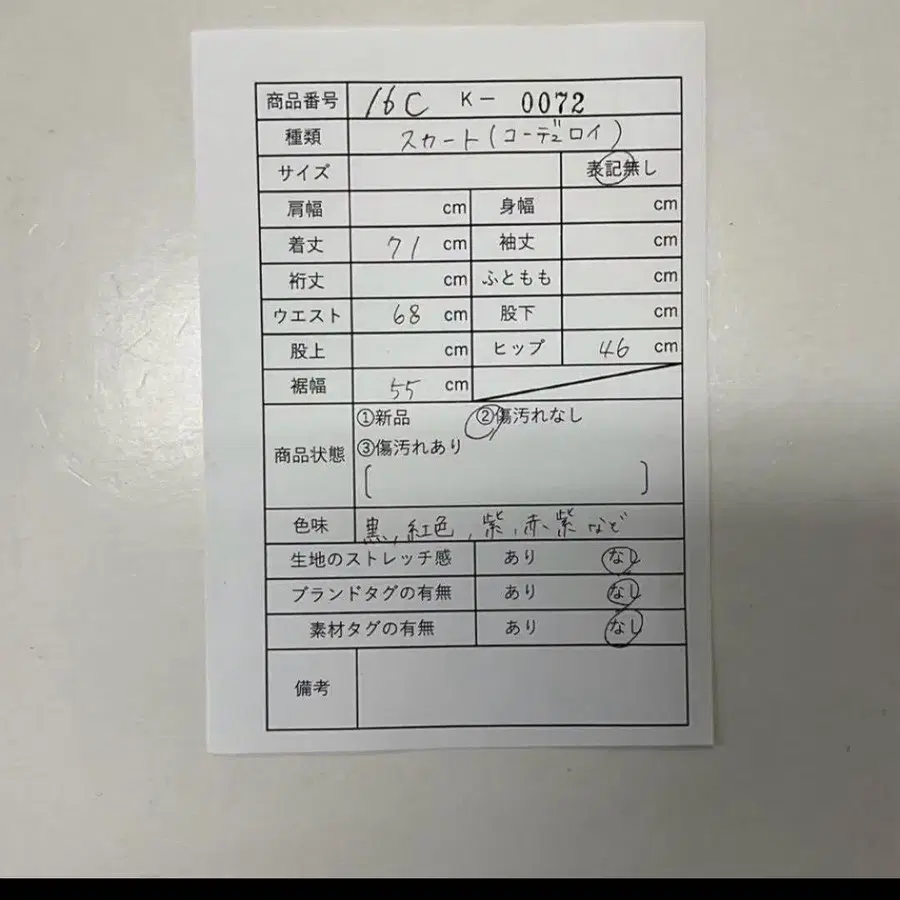 商品番号 16C K- 0072
種類 スカート(コーデュロイ)
サイズ 表記無し
肩幅 cm 身幅 cm
着丈 71 cm 袖丈 cm
裄丈 cm ふともも cm
ウエスト 68 cm 股下 cm
股上 cm ヒップ 46 cm
裾幅 55 cm
商品状態 ①新品 ②傷汚れなし
③傷汚れあり
[ ]
色味 黒、紅色、紫、赤、紫など
生地のストレッチ感 あり なし
ブランドタグの有無 あり なし
素材タグの有無 あり なし
備考